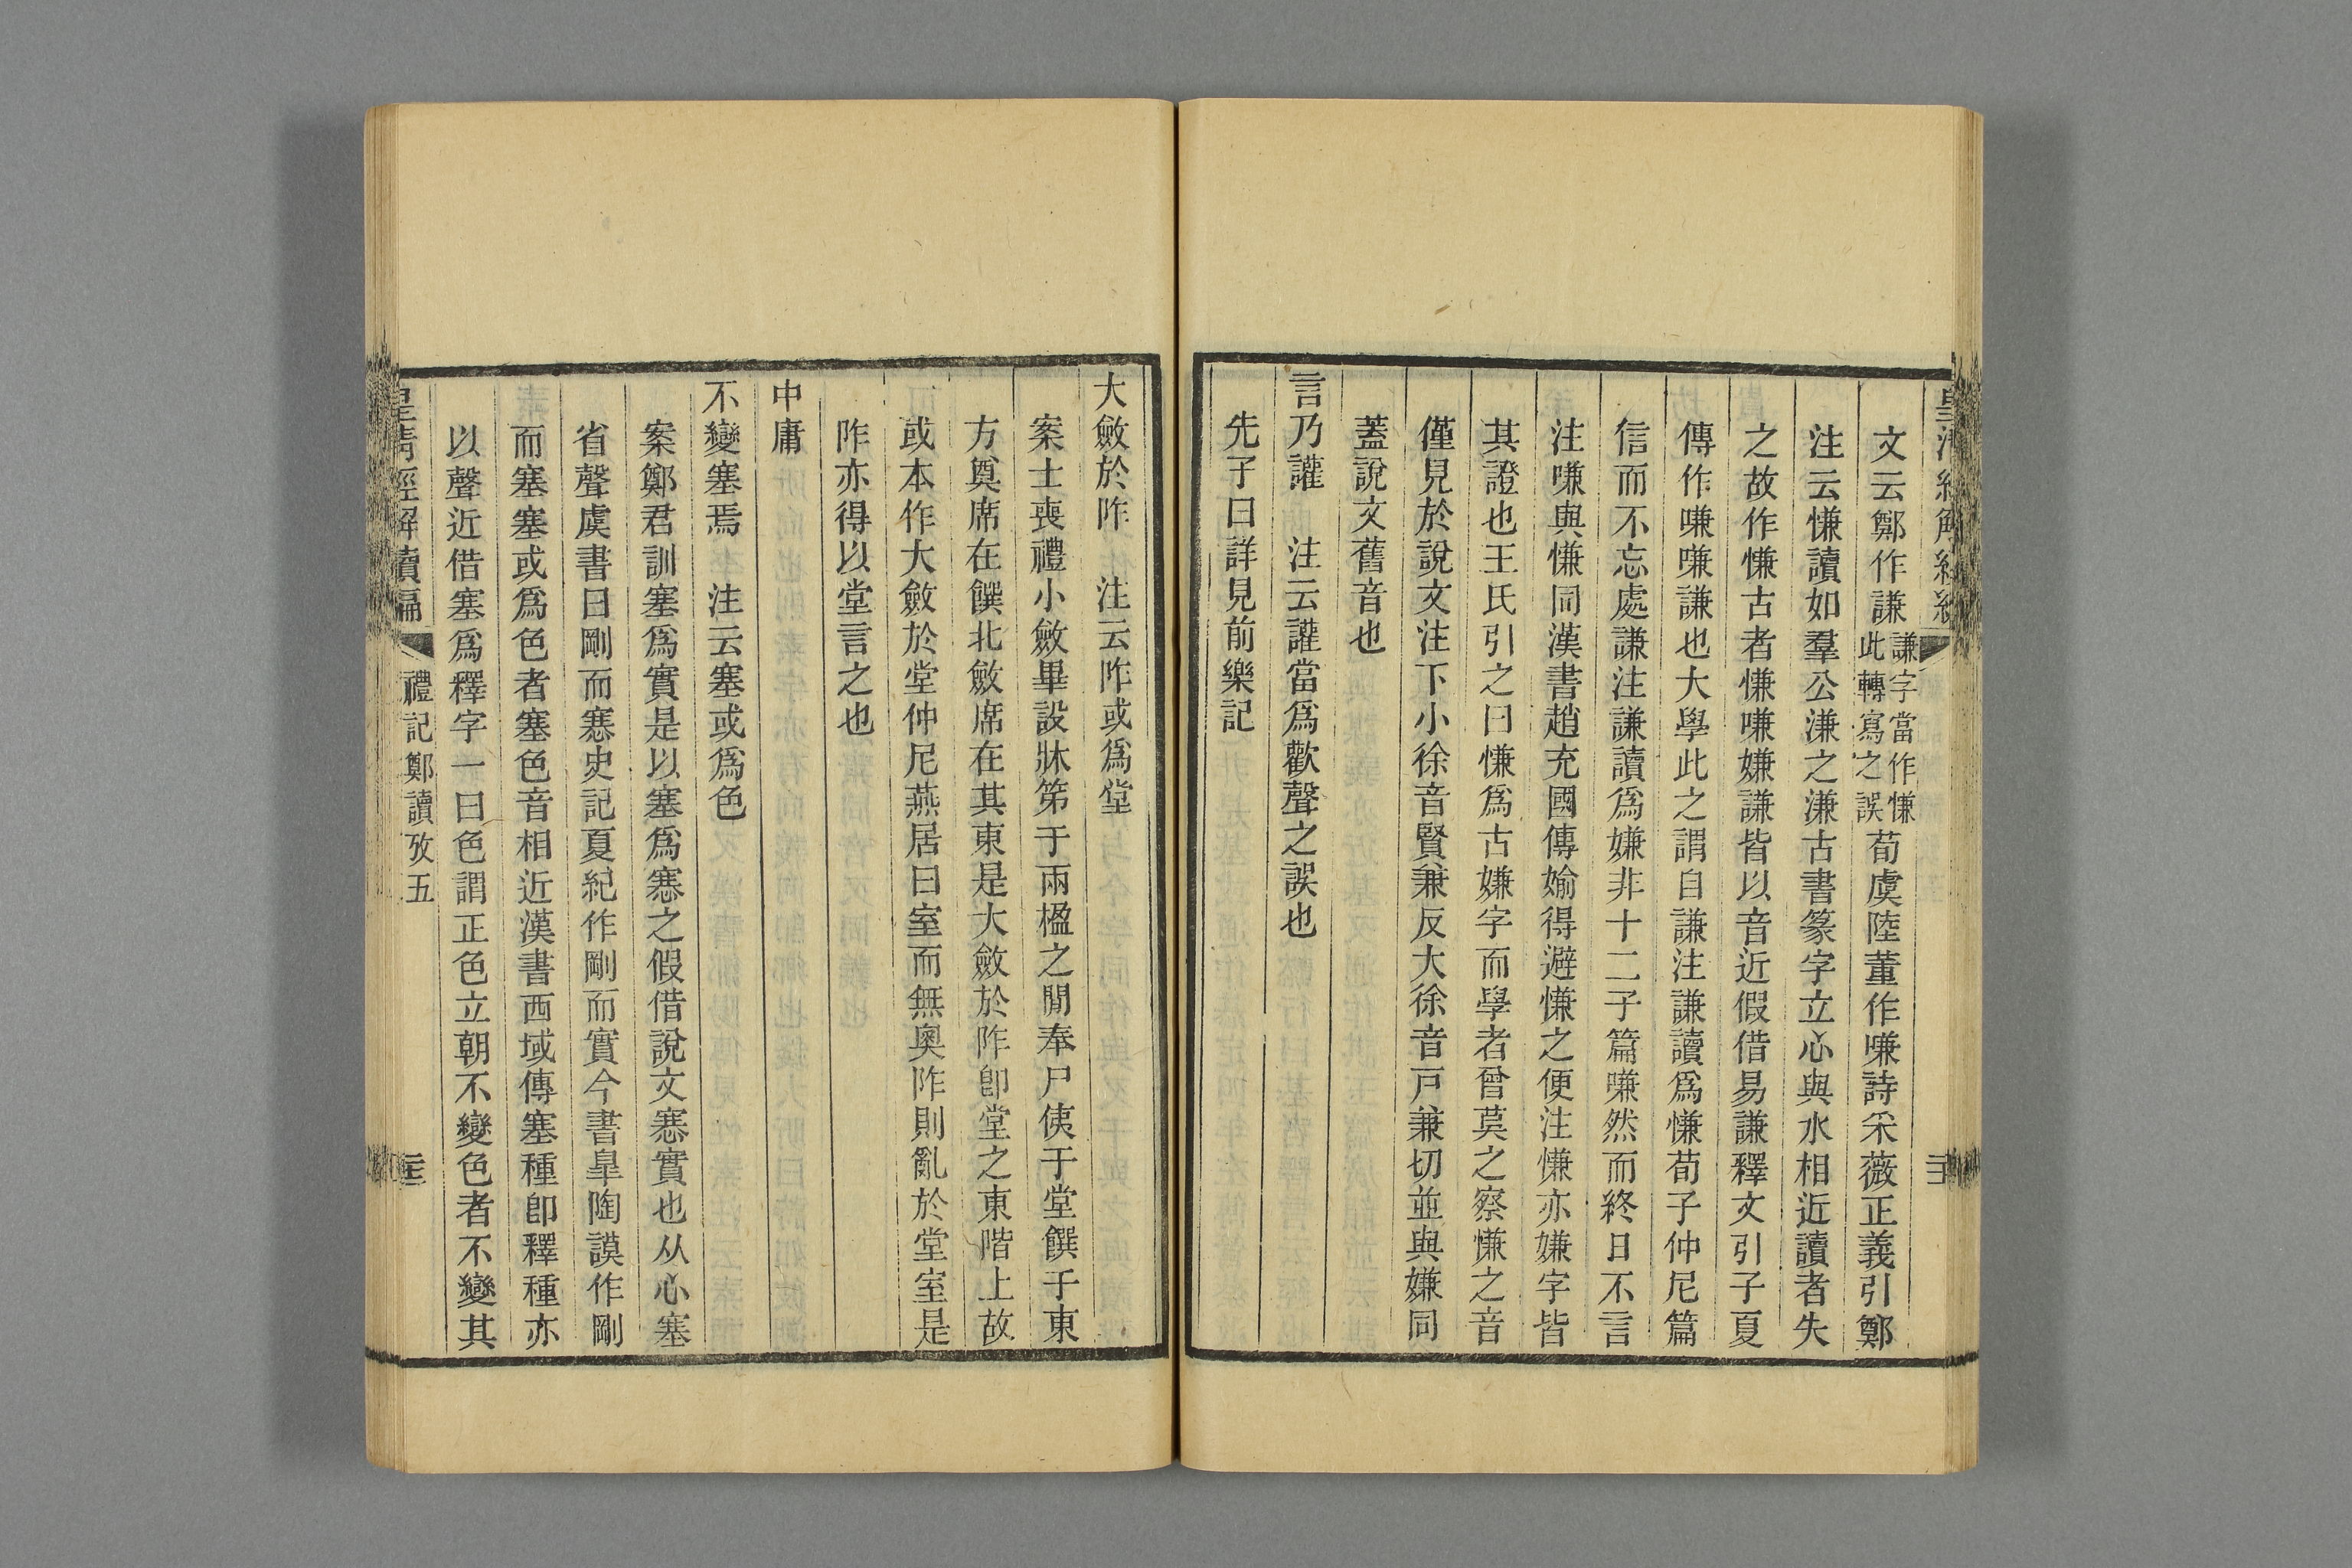 文云鄭作謙謙字當作慊此轉寫之誤荀虞陸董作嗛詩采薇正義引鄭
注云慊讀如羣公溓之溓古書篆字立心與水相近讀者失
之故作慊古者慊嗛嫌謙皆以音近假借易謙釋文引子夏
傳作嗛嗛謙也大學此之謂自謙注謙讀爲慊荀子仲尼篇
信而不忘處謙注謙讀爲嫌非十二子篇嗛然而終日不言
注嗛與慊同漢書趙充國傳媮得避慊之便注慊亦嫌字皆
其證也王氏引之曰慊爲古嫌字而學者曾莫之察慊之音
僅見於說文注下小徐音賢兼反大徐音戸兼切並與嫌同
蓋說文舊音也
言乃讙　注云讙當爲歡聲之誤也
先子曰詳見前樂記
大斂於阼　注云阼或爲堂
案士喪禮小斂畢設牀笫于兩楹之閒奉尸侇于堂饌于東
方奠席在饌北斂席在其東是大斂於阼卽堂之東階上故
或本作大斂於堂仲尼燕居曰室而無奧阼則亂於堂室是
阼亦得以堂言之也
中庸
不變塞焉　注云塞或爲色
案鄭君訓塞爲實是以塞爲𡫳之假借說文𡫳實也从心塞
省聲虞書曰剛而𡫳史記夏紀作剛而實今書皐陶謨作剛
而塞塞或爲色者塞色音相近漢書西域傳塞種卽釋種亦
以聲近借塞爲釋字一曰色謂正色立朝不變色者不變其
皇清經解續編　禮記鄭讀攷五